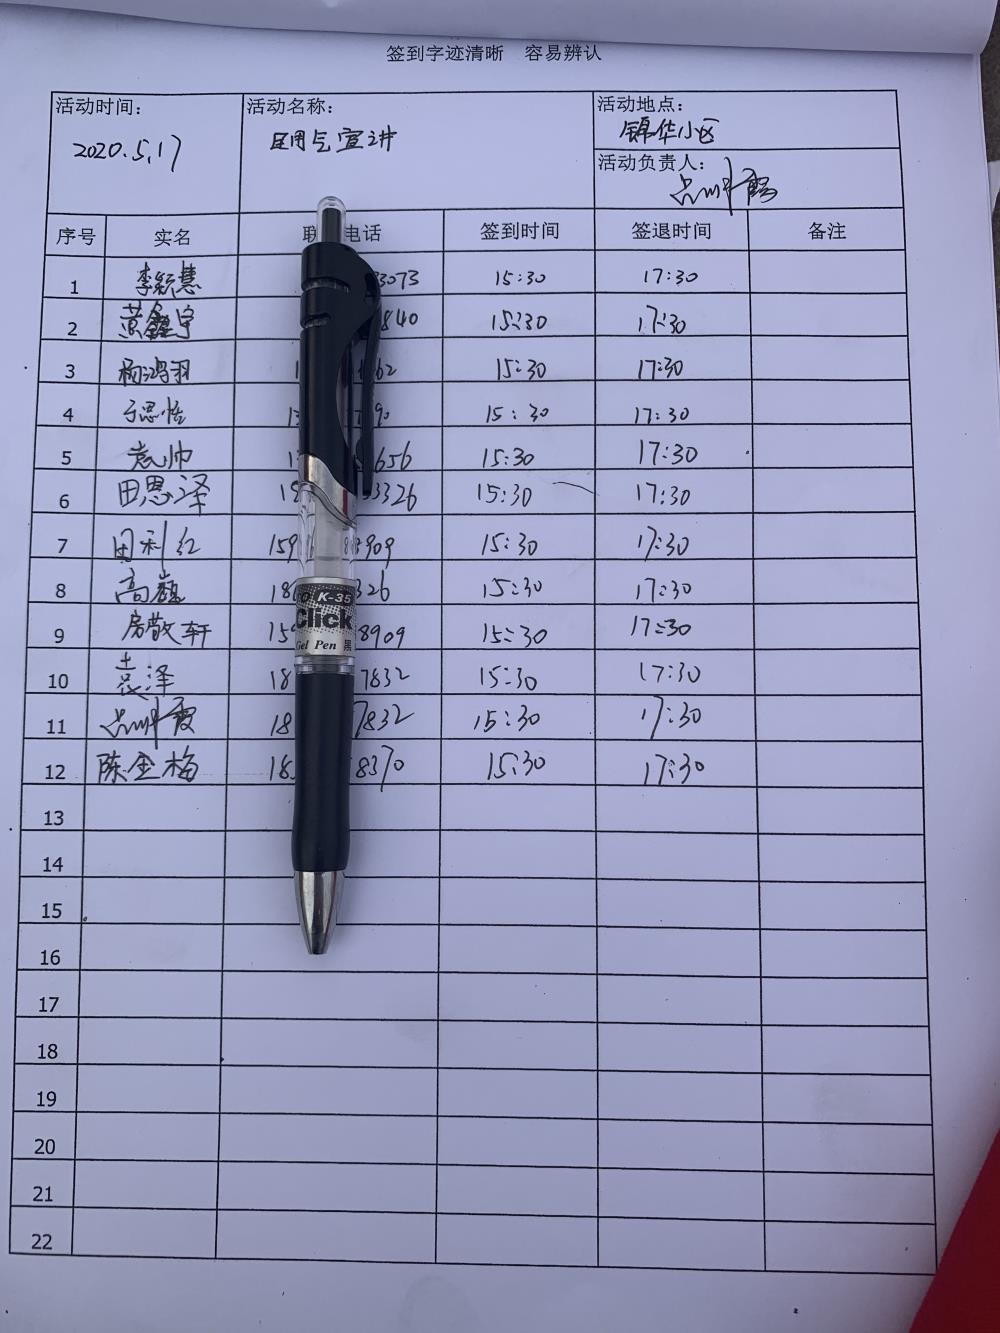 签到字迹清晰 容易辨认
活动时间: 活动名称: 活动地点:
2020.5.17 用气宣讲 锦华小区
活动负责人:
序号 实名 联 电话 签到时间 签退时间 备注
1 李颖慧 3073 15:30 17:30
2 黄鑫宇 840 15:30 17:30
3 杨鸿羽 62 15:30 17:30
4 90 15:30 17:30
5 袁帅 656 15:30 17:30
6 田思泽 18 3326 15:30 17:30
7 田利红 159 909 15:30 17:30
8 高巍 18 326 15:30 17:30
9 房敬轩 159 8909 15:30 17:30
10 袁泽 18 7832 15:30 17:30
11 霞 18 7832 15:30 17:30
12 陈金梅 18 8370 15:30 17:30
13
14
15
16
17
18
19
20
21
22
K-35
Click
Gel Pen 黑